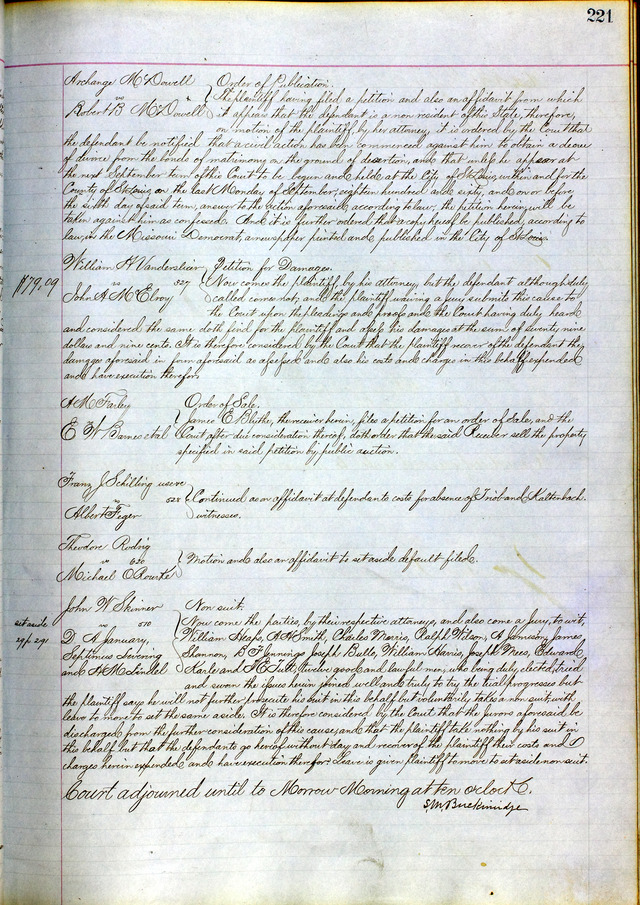 221
Archange McDowell } Order of Publication.
vs
The plaintiff having filed a petition and also an affidavit from which
Robert B McDowell } it appears that the defendant is a non resident of this State, therefore,
on motion of the plaintiff, by her attorney, it is ordered by the Court that
the defendant be notified that a civil action has been commenced against him to obtain a decree
of divorce from the bonds of matrimony on the ground of desertion, and that unless he appear at
the next September term of this Court to be begun and held at the City of St Louis, within and for the
County of St Louis, on the last Monday of September, eighteen hundred and sixty, and on or before
the sixth day of said term, answer to the action aforesaid according to law, the petition herein will be
taken against him as confessed. And it is further ordered that a copy hereof be published, according to
law, in the Missouri Democrat, a newspaper printed and published in the City of St Louis.
William H Vanderslier } Petition for Damages.
$79.09
vs 327
Now comes the plaintiff, by his attorney, but the defendant although duly
John A McElroy } called comes not, and the plaintiff waiving a jury submits this cause to
the Court upon the pleadings and proofs and the Court having duly heard
and considered the same doth find for the plaintiff and assess his damages at the sum of seventy nine
dollars and nine cents. It is therefore considered by the Court that the plaintiff recover of the defendant the
damages aforesaid in form aforesaid as assessed and also his costs and charges in this behalf expended
and have execution therefor.
A M Farley } Order of Sale.
vs
James E Blythe, the receiver herein, files a petition for an order of Sale, and the
E W Barnes et al } Court after due consideration thereof, doth order that the said Receiver sell the property
specified in said petition by public auction.
Franz J Schilling use re
vs 528 } Continued as on affidavit at defendants costs for absence of and Kaltenbach
Albert Feger } witnesses.
Theodore Rodrig
vs 630 } Motion and also an affidavit to set aside default filed.
Michael O'Rourke
John W Skinner } Non suit.
set aside
vs 510
Now come the parties, by their respective attorneys, and also come a Jury, to wit,
29 p. 291
D. A January, } William Heaps, A H Smith, Charles Morris, Ralph Wilson, A Jamison, James
Septimus Severing } Shannon, B F Jennings, Joseph Bulle, William Harris, Joseph Mees, Edward
and H M Lindel } Karle and twelve good and lawful men, who being duly elected, tried
and sworn the issues herein joined well and truly to try the trial progresses but
the plaintiff says he will not further prosecute his suit in this behalf but voluntarily takes a non suit, with
leave to move to set the same aside. It is therefore considered by the Court that the Jurors aforesaid be
discharged from the further consideration of this cause, and that the plaintiff take nothing by his suit in
this behalf, but that the defendants go hereof without day and recover of the plaintiff their costs and
charges herein expended and have execution therefor. Leave is given plaintiff to move to set aside non suit.
Court adjourned until to Morrow Morning at ten o'clock.
S. M. Breckinridge